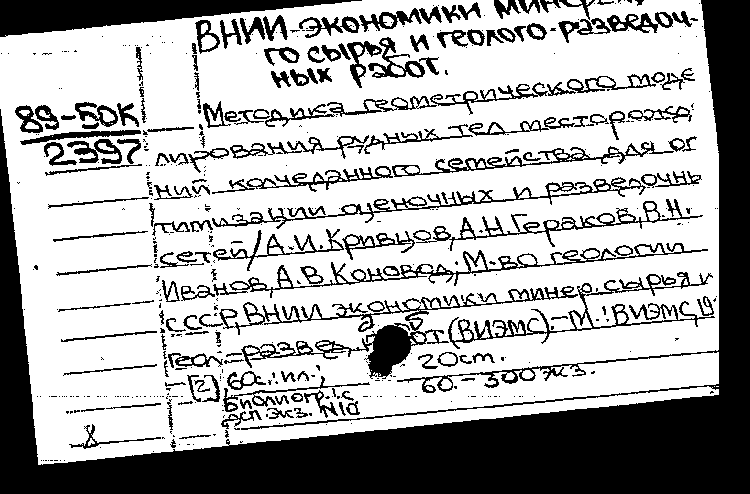 ВНИИ ЭКОНОМИКИ
ГО СЫРЬЯ И ГЕОЛОГО-РАЗВЕДОЧ-
НЫХ РАБОТ.
89-50К
2397
Методика геометрического моде
лирования рудных тел месторожд
ний колчеданного семейства для оп
тимизации оценочных и разведочнь
сетей/А.И.Кривцов, А.Н.Гераков, В.Н.
Иванов, А.В.Коновод; М-во геологии
СССР, ВНИИ экономики минер. сырья и
геол.-развед. от (ВИЭМС).-М.: ВИЭМС, 19
[2], 60с.: ил.; 20см.
Библиогр.: с 60.-300экз.
дсп экз. N1а
8